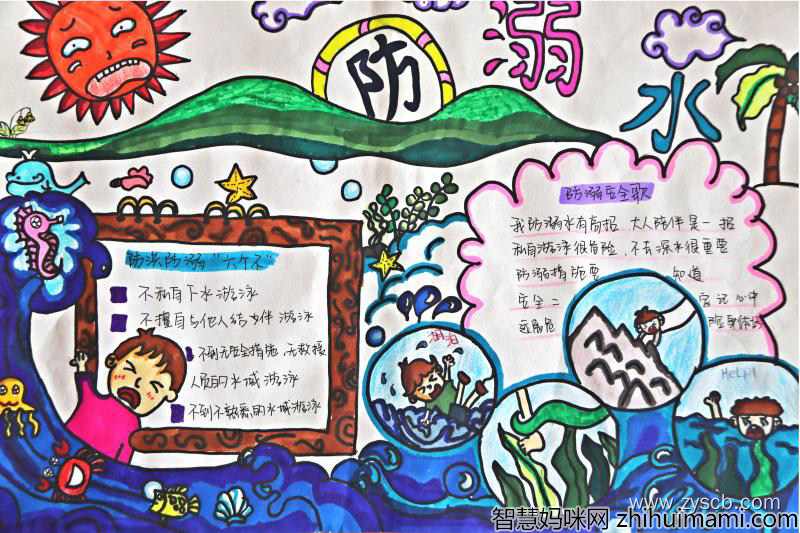 防溺水
防洪防溺“六个不”
不私自下水游泳
不擅自与他人结伴游泳
不到无安全措施 无救援
人员的水域游泳
不到不熟悉的水域游泳
防溺安全歌
我防溺水有高招 大人陪伴是一招
私自游泳很危险 不去深水很重要
防溺措施要 知道
安全二 牢记心中
远船危
HELP!
www.zyscb.com
智慧妈咪网 zhihuimami.com